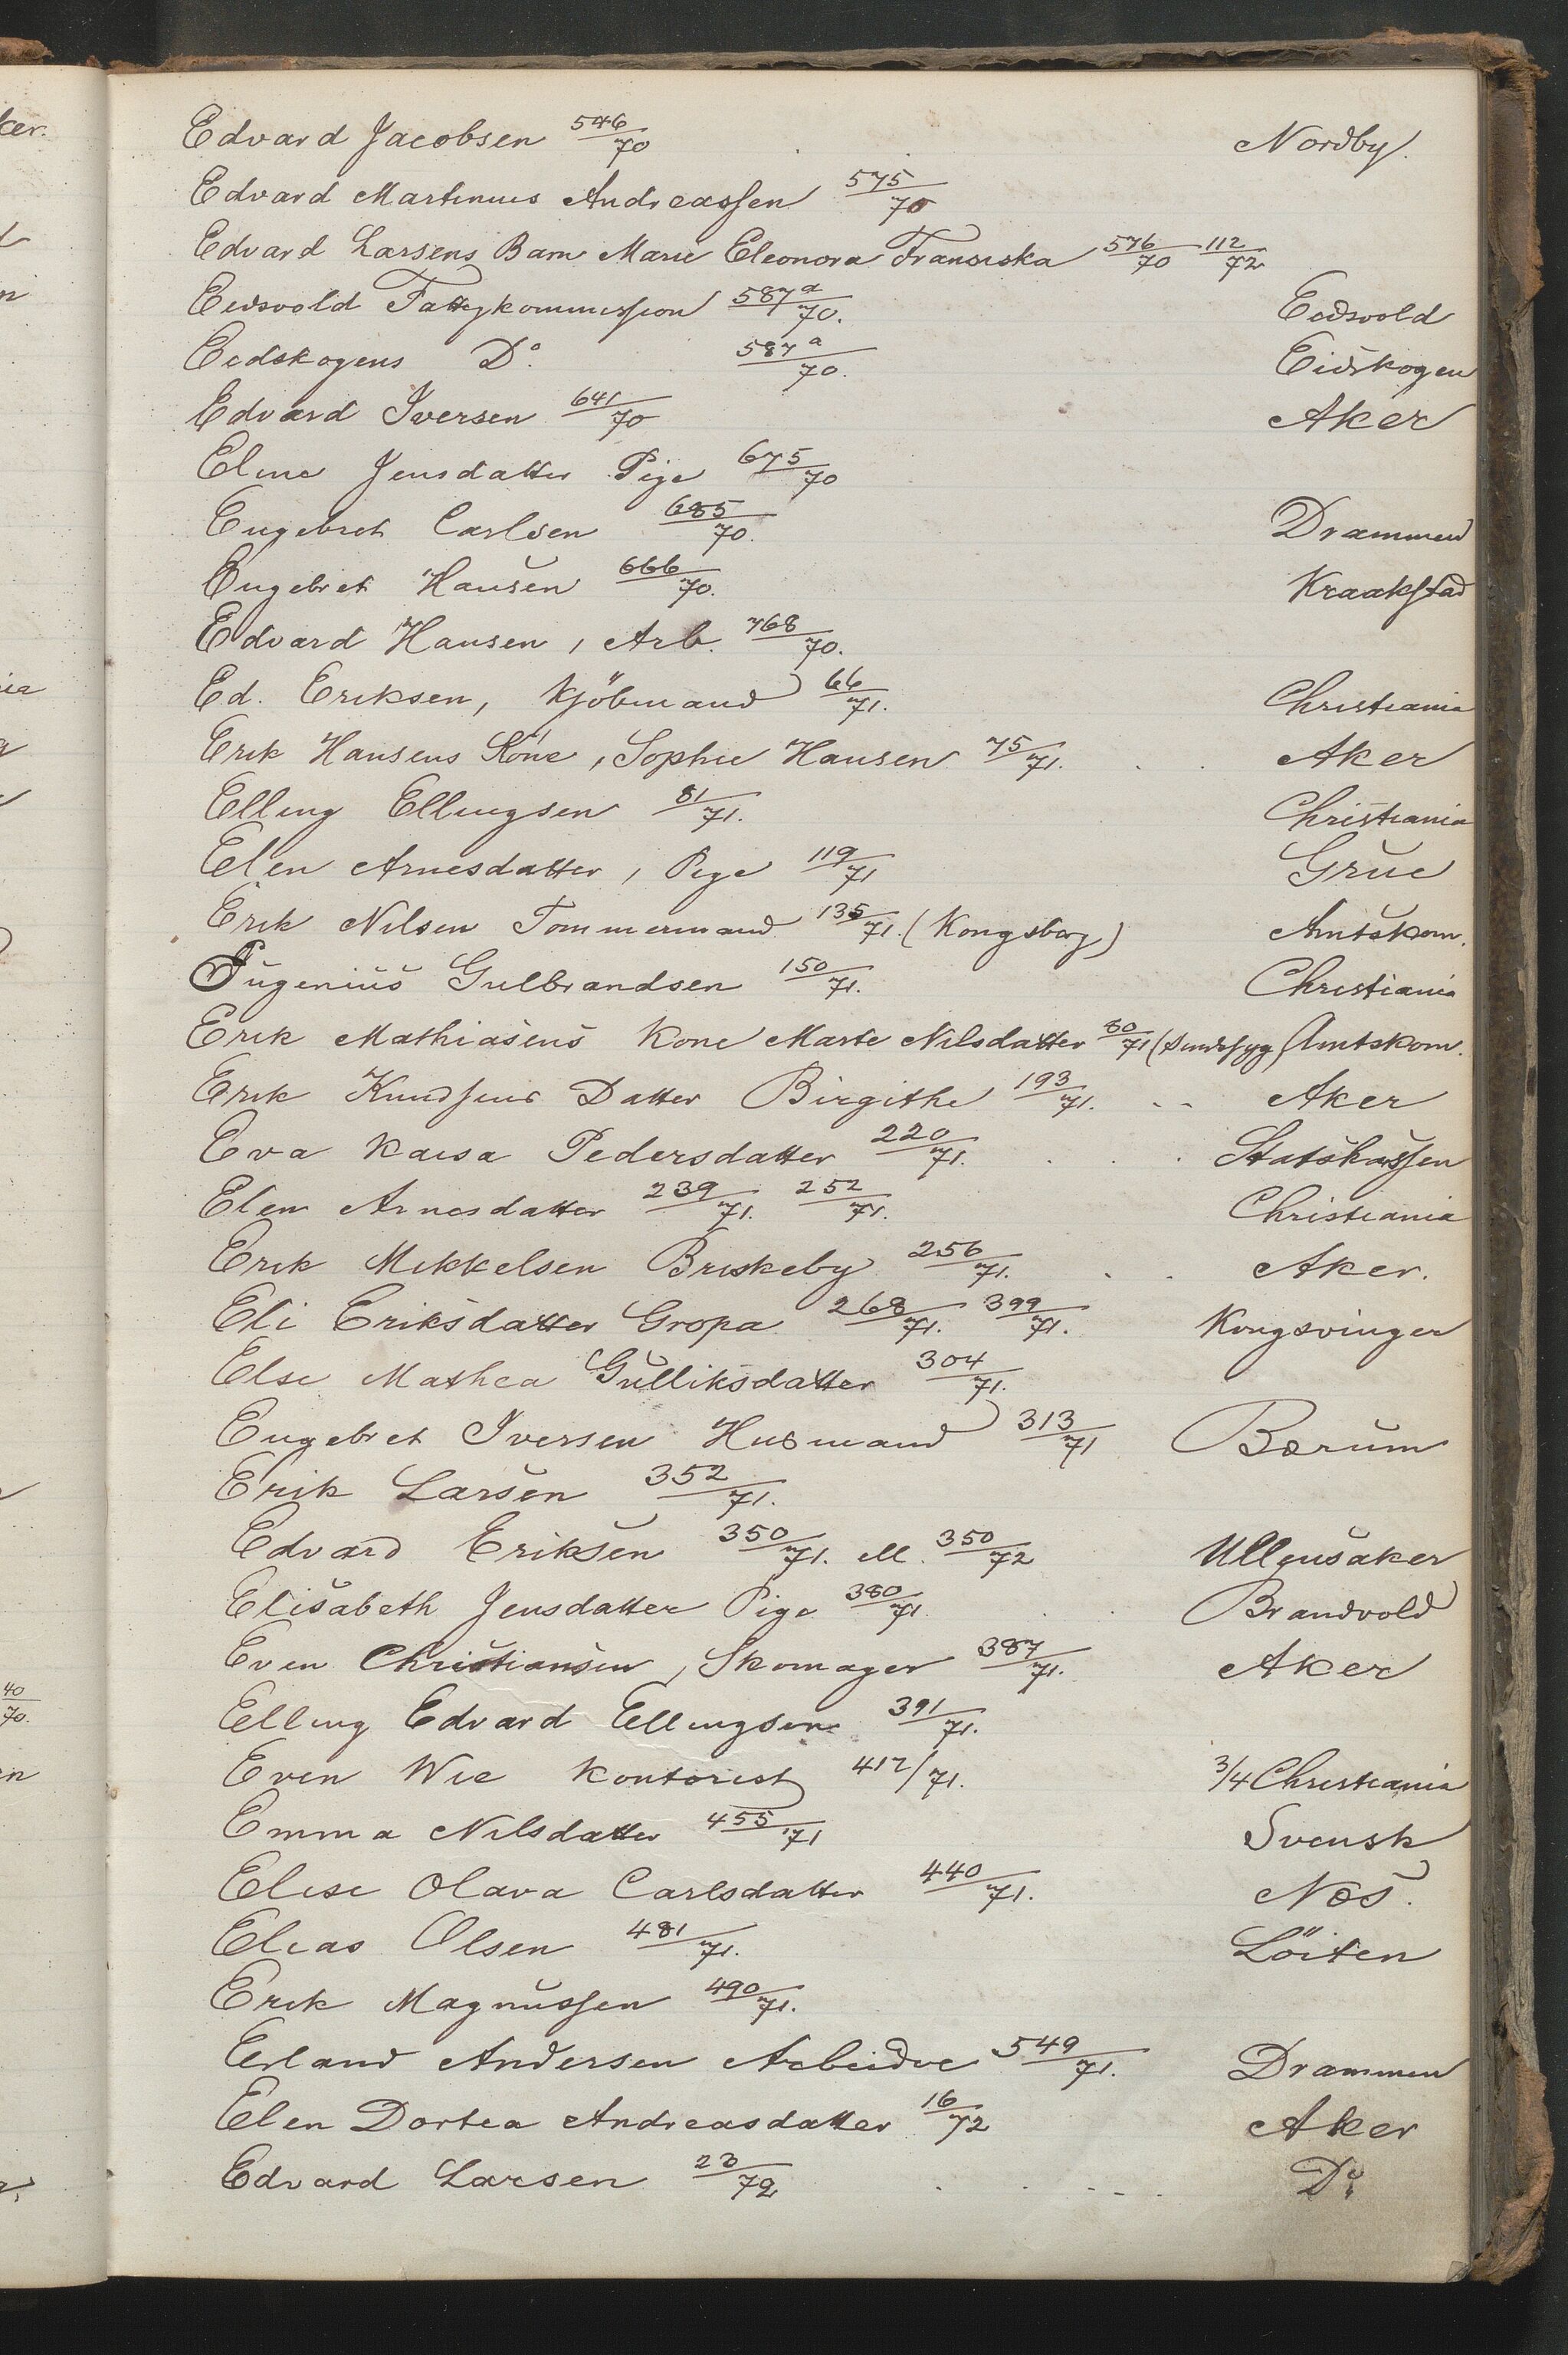 Edvard Jacobsen 546/70 Nordby.
Edvard Martinius Andreassen 575/70
Edvard Larsens Barn Marie Eleonora Fransiska 576/70 112/72
Eidsvold Fattigkommission 587a/70. Eidsvold
Eidskogens Do. 587a/70. Eidskogen
Edvard Iversen 641/70 Aker
Eline Jensdatter Pige 675/70
Engebret Carlsen 685/70. Drammen
Engebret Hansen 666/70. Kraakstad
Edvard Hansen, Arb. 768/70.
Ed. Eriksen, Kjöbmand 66/71. Christiania
Erik Hansens Kone, Sophie Hansen 75/71. Aker
Elling Ellingsen 81/71. Christiania
Elen Arnesdatter, Pige 119/71 Grue
Erik Nilsen Tommermand 135/71. (Kongsberg) Amtskom.
Eugenius Gulbrandsen 150/71. Christiania
Erik Mathiasens Kone Marte Nilsdatter 80/71 Amtskom.
Erik Knudsens Datter Birgithe 193/71. Aker
Eva Kaisa Pedersdatter 220/71. Statskassen
Elen Arnesdatter 239/71. 252/71. Christiania
Erik Mikkelsen Briskeby 256/71. Aker.
Eli Eriksdatter Gropa 268/71. 399/71. Kongsvinger
Else Mathea Gulliksdatter 304/71.
Engebret Iversen Husmand 313/71 Bærum
Erik Larsen 352/71.
Edvard Eriksen 350/71. ell. 350/72 Ullensaker
Elisabeth Jensdatter Pige 380/71. Brandvold
Even Christiansen, Skomager 387/71. Aker
Elling Edvard Ellingsen 391/71.
Even Wie Kontorist 412/71. 3/4 Christiania
Emma Nilsdatter 455/71 Svensk
Elise Olava Carlsdatter 440/71. Næs.
Elias Olsen 481/71. Löiten
Erik Magnussen 490/71.
Erland Andersen Arbeider 549/71. Drammen
Elen Dortea Andreasdatter 16/72 Aker
Edvard Larsen 23/72 Do